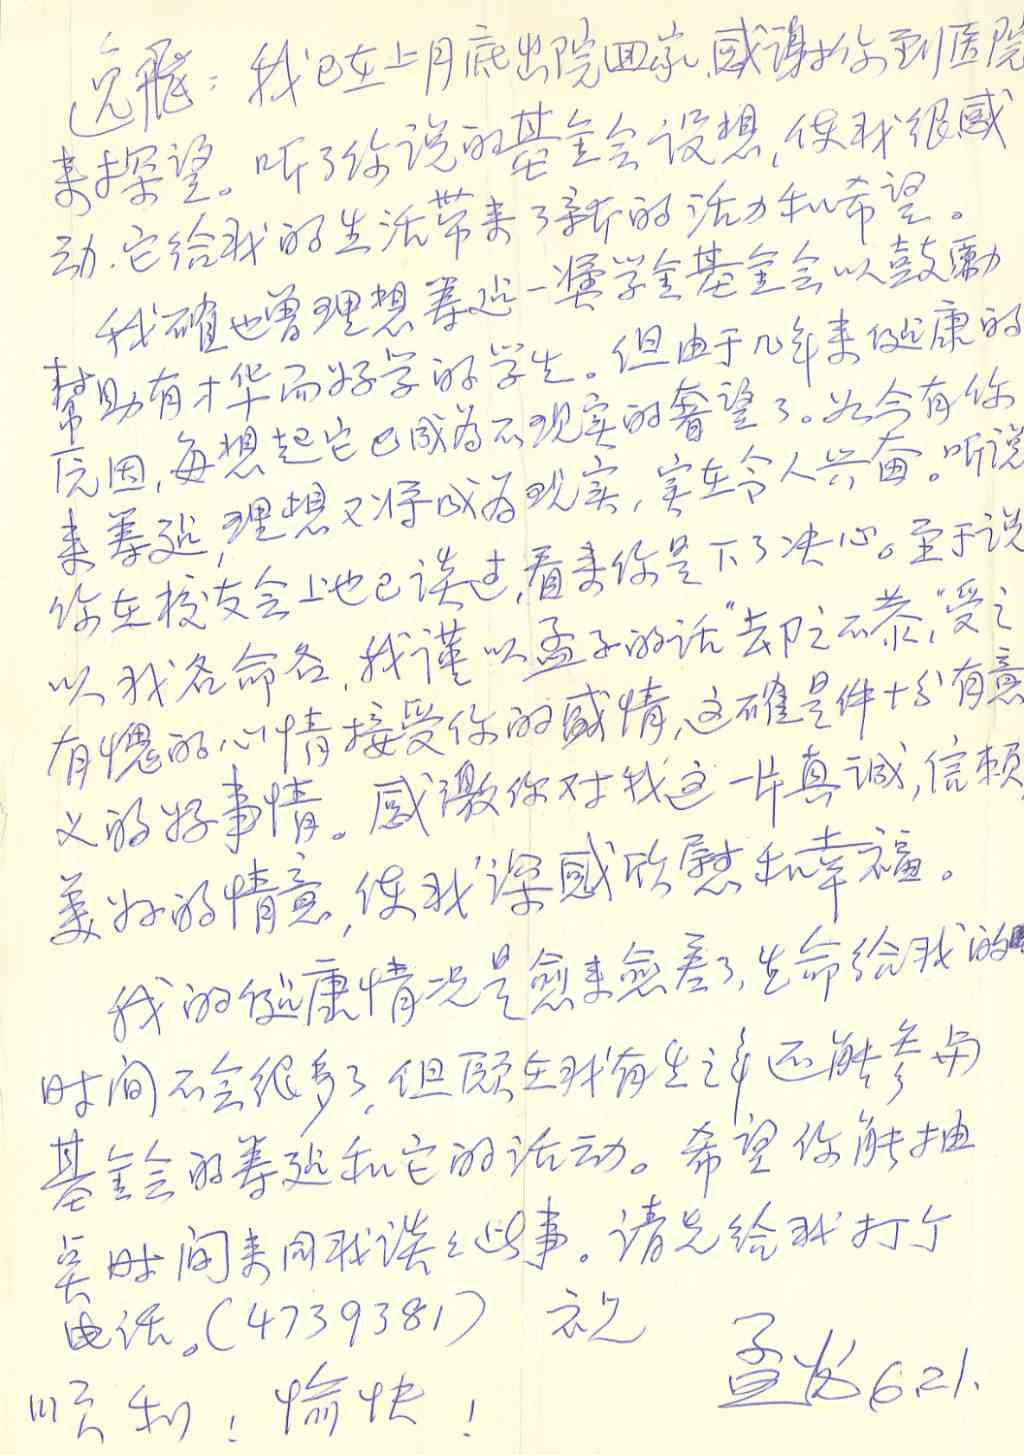 逸飛：我已在上月底出院回家，感谢你到医院
来探望。听了你说的基金会设想，使我很感
动．它给我的生活带来了新的活力和希望。
我確也曾理想筹延一獎学金基金会以鼓勵
幫助有才华而好学的学生。但由于几年来健康的
原因，每想起它已成为不现实的奢望了。如今有你
来筹延，理想又将成为现实，实在令人兴奋。听说
你在校友会上也已谈过，看来你是下了决心。至于说
以我名命名，我谨以孟子的话“却之不恭”，受之
有愧的心情接受你的感情，这確是件十分有意
义的好事情。感激你对我这一片真诚，信赖，
美好的情意，使我深感欣慰和幸福。
我的健康情况是愈来愈差了，生命给我的
时间不会很多了，但願在我有生之年还能参与
基金会的筹延和它的活动。希望你能抽
点时间来同我谈谈此事。请先给我打个
电话。（4739381） 祝
顺利！愉快！
孟光 6.21.